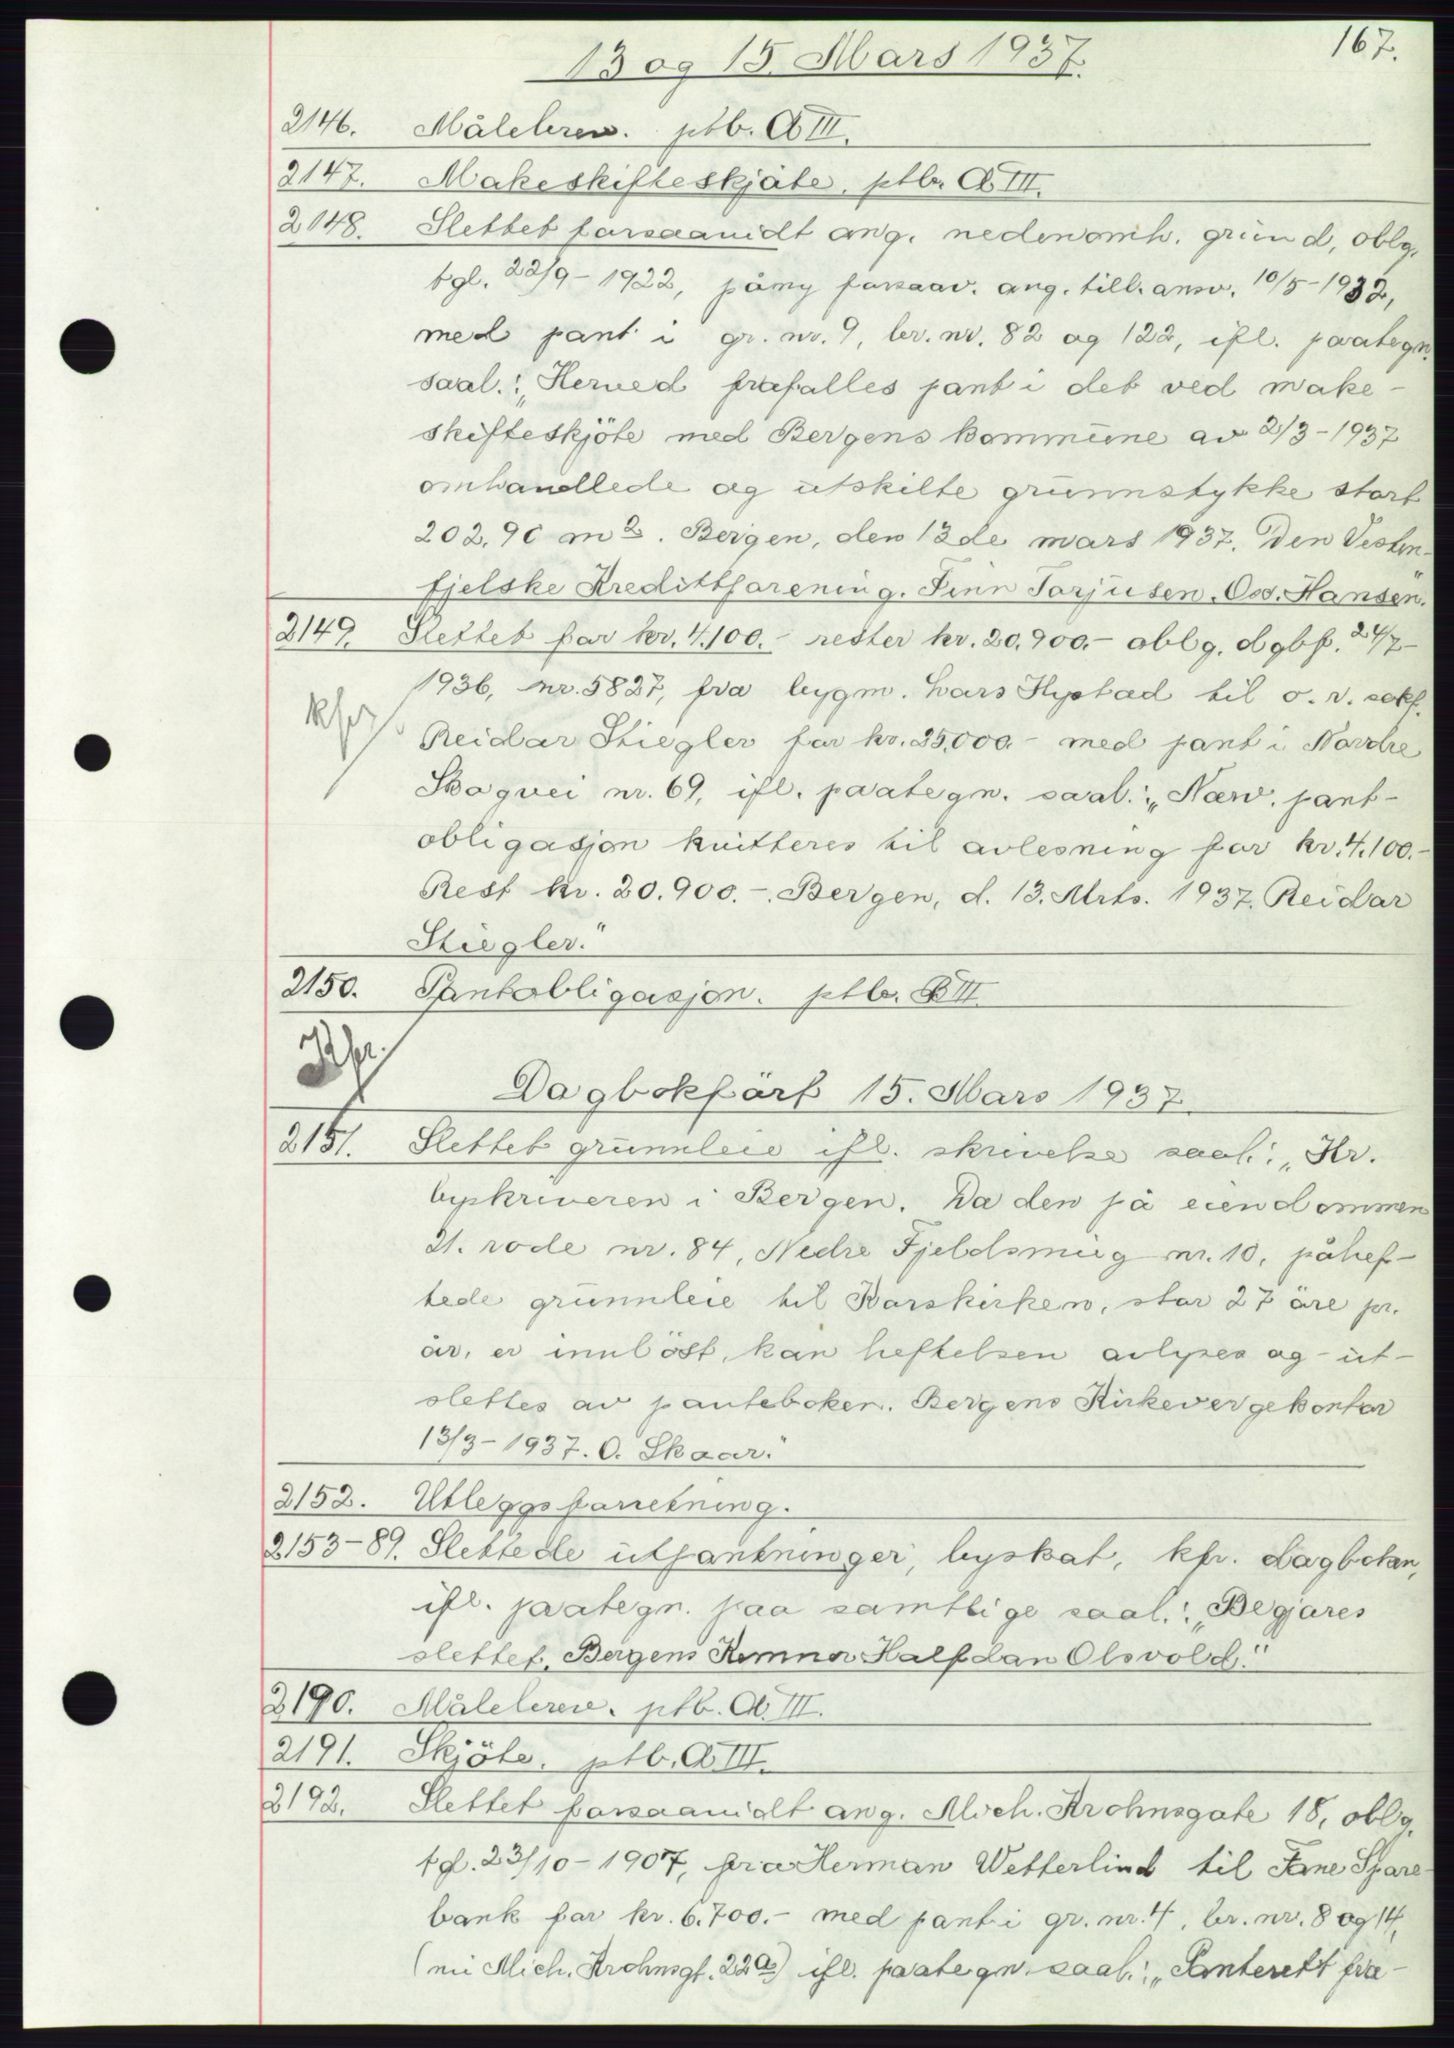 167.
13 og 15. Mars 1937.
2146. Målebrev. ptb. A III.
2147. Makeskifteskjøte. ptb. A III.
2148. Slettet forsaavidt ang. nedenomh. grund, oblg.
tgl. 22/9-1922, påny forsaav. ang. till. ansv. 10/5-1932,
med pant i gr. nr. 9, br. nr. 82 og 122, ifl. paategn.
saal.: „Herved frafalles pant i det ved make-
skifteskjöte med Bergens kommune av 2/3-1937
omhandlede og utskilte grunnstykke stort
202,90 m2. Bergen, den 12de mars 1937. Den Vesten-
fjelske Kredittforening. Finn Torjusen. Osv. Hansen".
2149. Slettet for kr. 4.100.- rester kr. 20.900.- oblg. dgbf. 24/7-
1936, nr. 5827, fra bygm. Lars Hystad til o. r. sakf.
kfr
Reidar Stiegler for kr. 25.000.- med pant i Nordre
Skogvei nr. 69, ifl. paategn. saal.: „Nærv. pant-
obligasjon kvitteres til avlesning for kr. 4.100.-
Rest kr. 20.900.-. Bergen, d. 13. Mrts. 1937. Reidar
Stiegler."
2150. Pantobligasjon. ptb. B III.
Kfr.
Dagbokført 15. Mars 1937.
2151. Slettet grunnleie ifl. skrivelse saal.: „Hr.
byskriveren i Bergen. Da den på eiendommen
21. rode nr. 84, Nedre Fjeldsmug nr. 10, påhef-
tede grunnleie til Korskirken, stor 27 öre pr.
år, er innlöst, kan heftelsen avlyses og ut-
slettes av panteboken. Bergens Kirkevergekontor
13/3-1937. O. Skaar."
2152. Utleggsforretning.
2153-89. Slettede utpantninger, byskat, kfr. dagboken,
ifl. paategn. paa samtlige saal.: „Begjæres
slettet. Bergens Kemner Halfdan Olsvold."
2190. Målebrev. ptb. A. III.
2191. Skjöte. ptb. A III.
2192. Slettet forsaavidt ang. Mich. Krohnsgate 18, oblg.
tgl. 23/10-1907, fra Herman Wetterlind til Fane Spare-
bank for kr. 6.700.- med pant i gr. nr. 4, br. nr. 8 og 14,
(nu Mich. Krohnsgt. 22a) ifl. paategn. saal.: „Panterett fra-